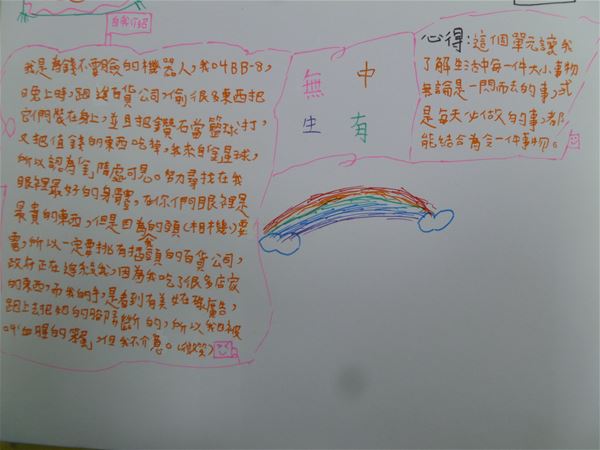 自我介紹
我是為錢不要臉的機器人，我叫4BB-8，
晚上時，跑進百貨公司，偷很多東西把
它們裝在身上，並且把鑽石當籃球打，
又把值錢的東西吃掉，我來自金星球，
所以認為金隨處可見。努力尋找在我
眼裡最好的身體，在你們眼裡是
最貴的東西，但是因為我的頭(相機)要
電，所以一定要挑有插頭的百貨公司，
政府正在追殺我，因為我吃了很多店家
的東西，而我的手，是看到有美女
跑上去把她的腳 斷的，所以我被
叫血腥的 ，但我不介意。(微笑)
無 中
生 有
心得：這個單元讓我
了解生活中每一件大小事物
無論是一閃而去的事，或
是每天必做的事，都
能結合為令一件事物。